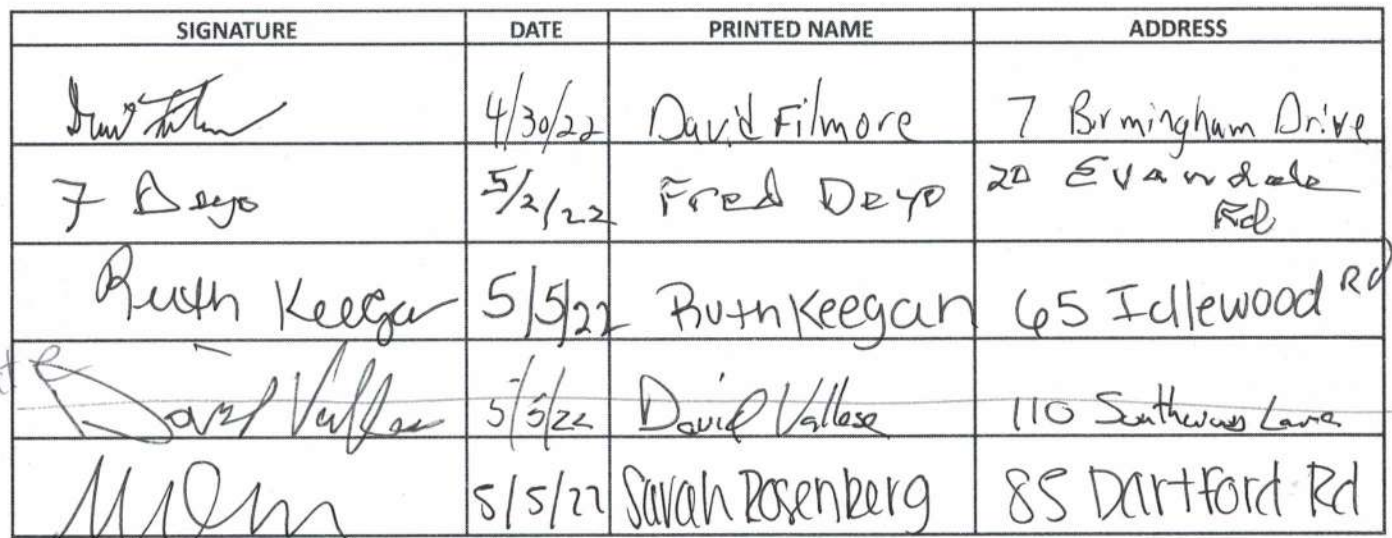 SIGNATURE DATE PRINTED NAME ADDRESS
4/30/22 David Filmore 7 Birmingham Drive
7 Deyo 5/2/22 Fred Deyo 20 Evandale
Rd
Ruth Keegan 5/5/22 Ruth Keegan 65 Idlewood Rd
David Vallese 5/5/22 David Vallese 110 Lane
5/5/22 Sarah Rosenberg 85 Dartford Rd